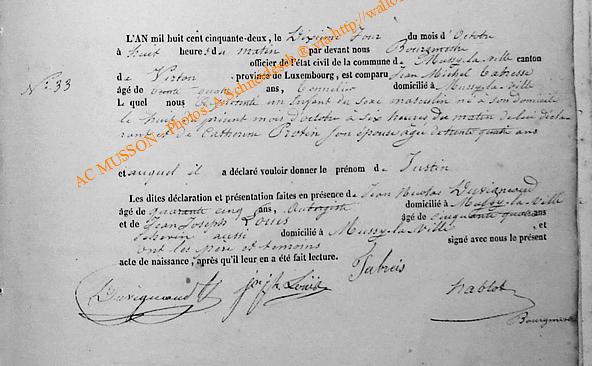 L'AN mil huit cent cinquante-deux, le Dixième Jour du mois d'Octobre
N° 33
à huit heures du matin par devant nous Bourgmestre
officier de l'état civil de la commune de Mussy-la-Ville canton
de Virton, province de Luxembourg, est comparu Jean Michel
âgé de trente quatre ans, domicilié à Mussy-la-Ville
L quel nous a présenté un Enfant du sexe masculin né à son domicile
le huit du présent mois d'octobre à six heures du matin de lui décla-
rant et de Catherine Protin son épouse âgée de trente quatre ans
et auquel il a déclaré vouloir donner le prénom de Justin
Les dites déclaration et présentation faites en présence de Jean Nicolas Duvigneaud
âgé de quarante cinq ans, Aubergiste domicilié à Mussy-la-Ville
et de Jean Joseph Louis âgé de cinquante quatre ans
Echevin aussi domicilié à Mussy-la-Ville, et
ont les père et témoins signé avec nous le présent
acte de naissance, après qu'il leur en a été fait lecture.
Duvigneaud Joseph Louis nablot
Bourgmestre
AC MUSSON - Photos: A Schneidesch @ visit http://wallo